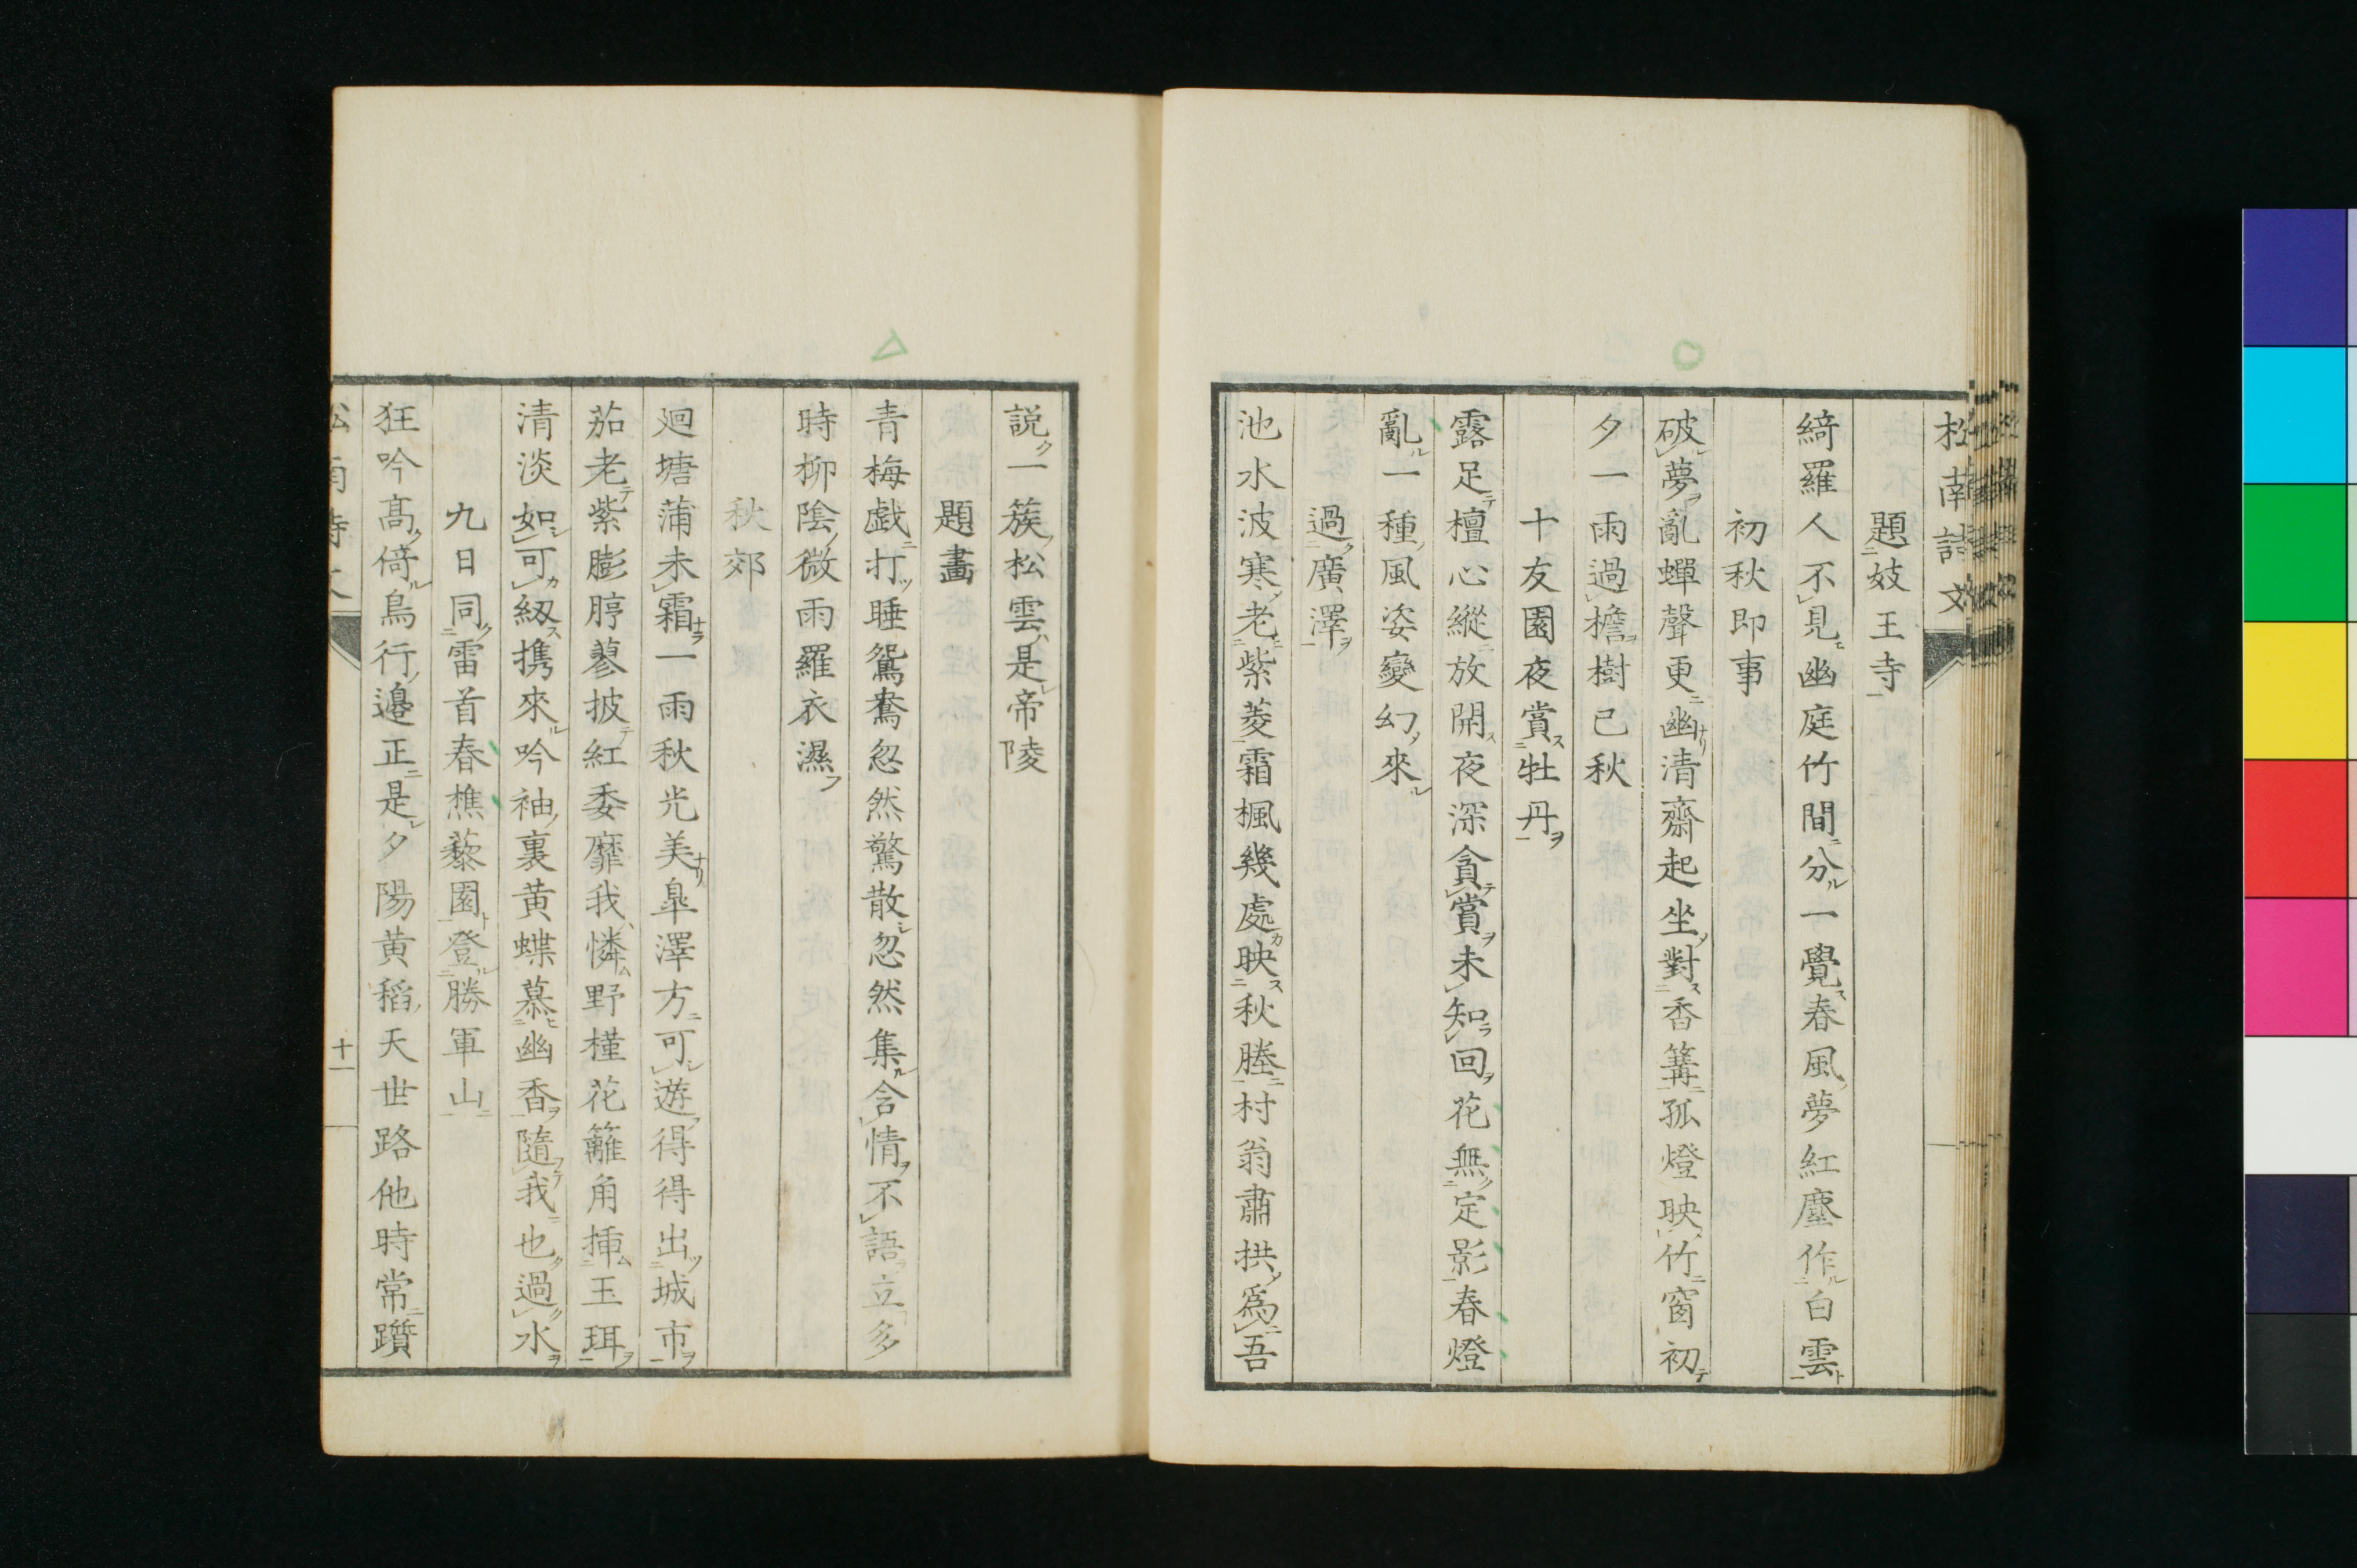 松南詩文
題妓王寺
綺羅人不見幽庭竹間分一覺春風夢紅塵作白雲
初秋即事
破夢亂蟬聲更幽清齋起坐對香篝孤燈映竹窗初
夕一雨過檐樹已秋
十友園夜賞牡丹
露足檀心縱放開夜深貪賞未知回花無定影春燈
亂一種風姿變幻來
過廣澤
池水波寒老紫菱霜楓幾處映秋塍村翁肅拱爲吾
説一簇松雲是帝陵
題畫
青梅戯打睡鴛鴦忽然驚散忽然集含情不語立多
時柳陰微雨羅衣濕
秋郊
廻塘蒲未霜一雨秋光美皐澤方可遊得得出城市
茄老紫膨脝蓼披紅委靡我憐野槿花籬角挿玉珥
清淡如可紉携來吟袖裏黄蝶慕幽香隨我也過水
九日同雷首春樵藜園登勝軍山
狂吟髙倚鳥行邉正是夕陽黄稻天世路他時常躓
十一